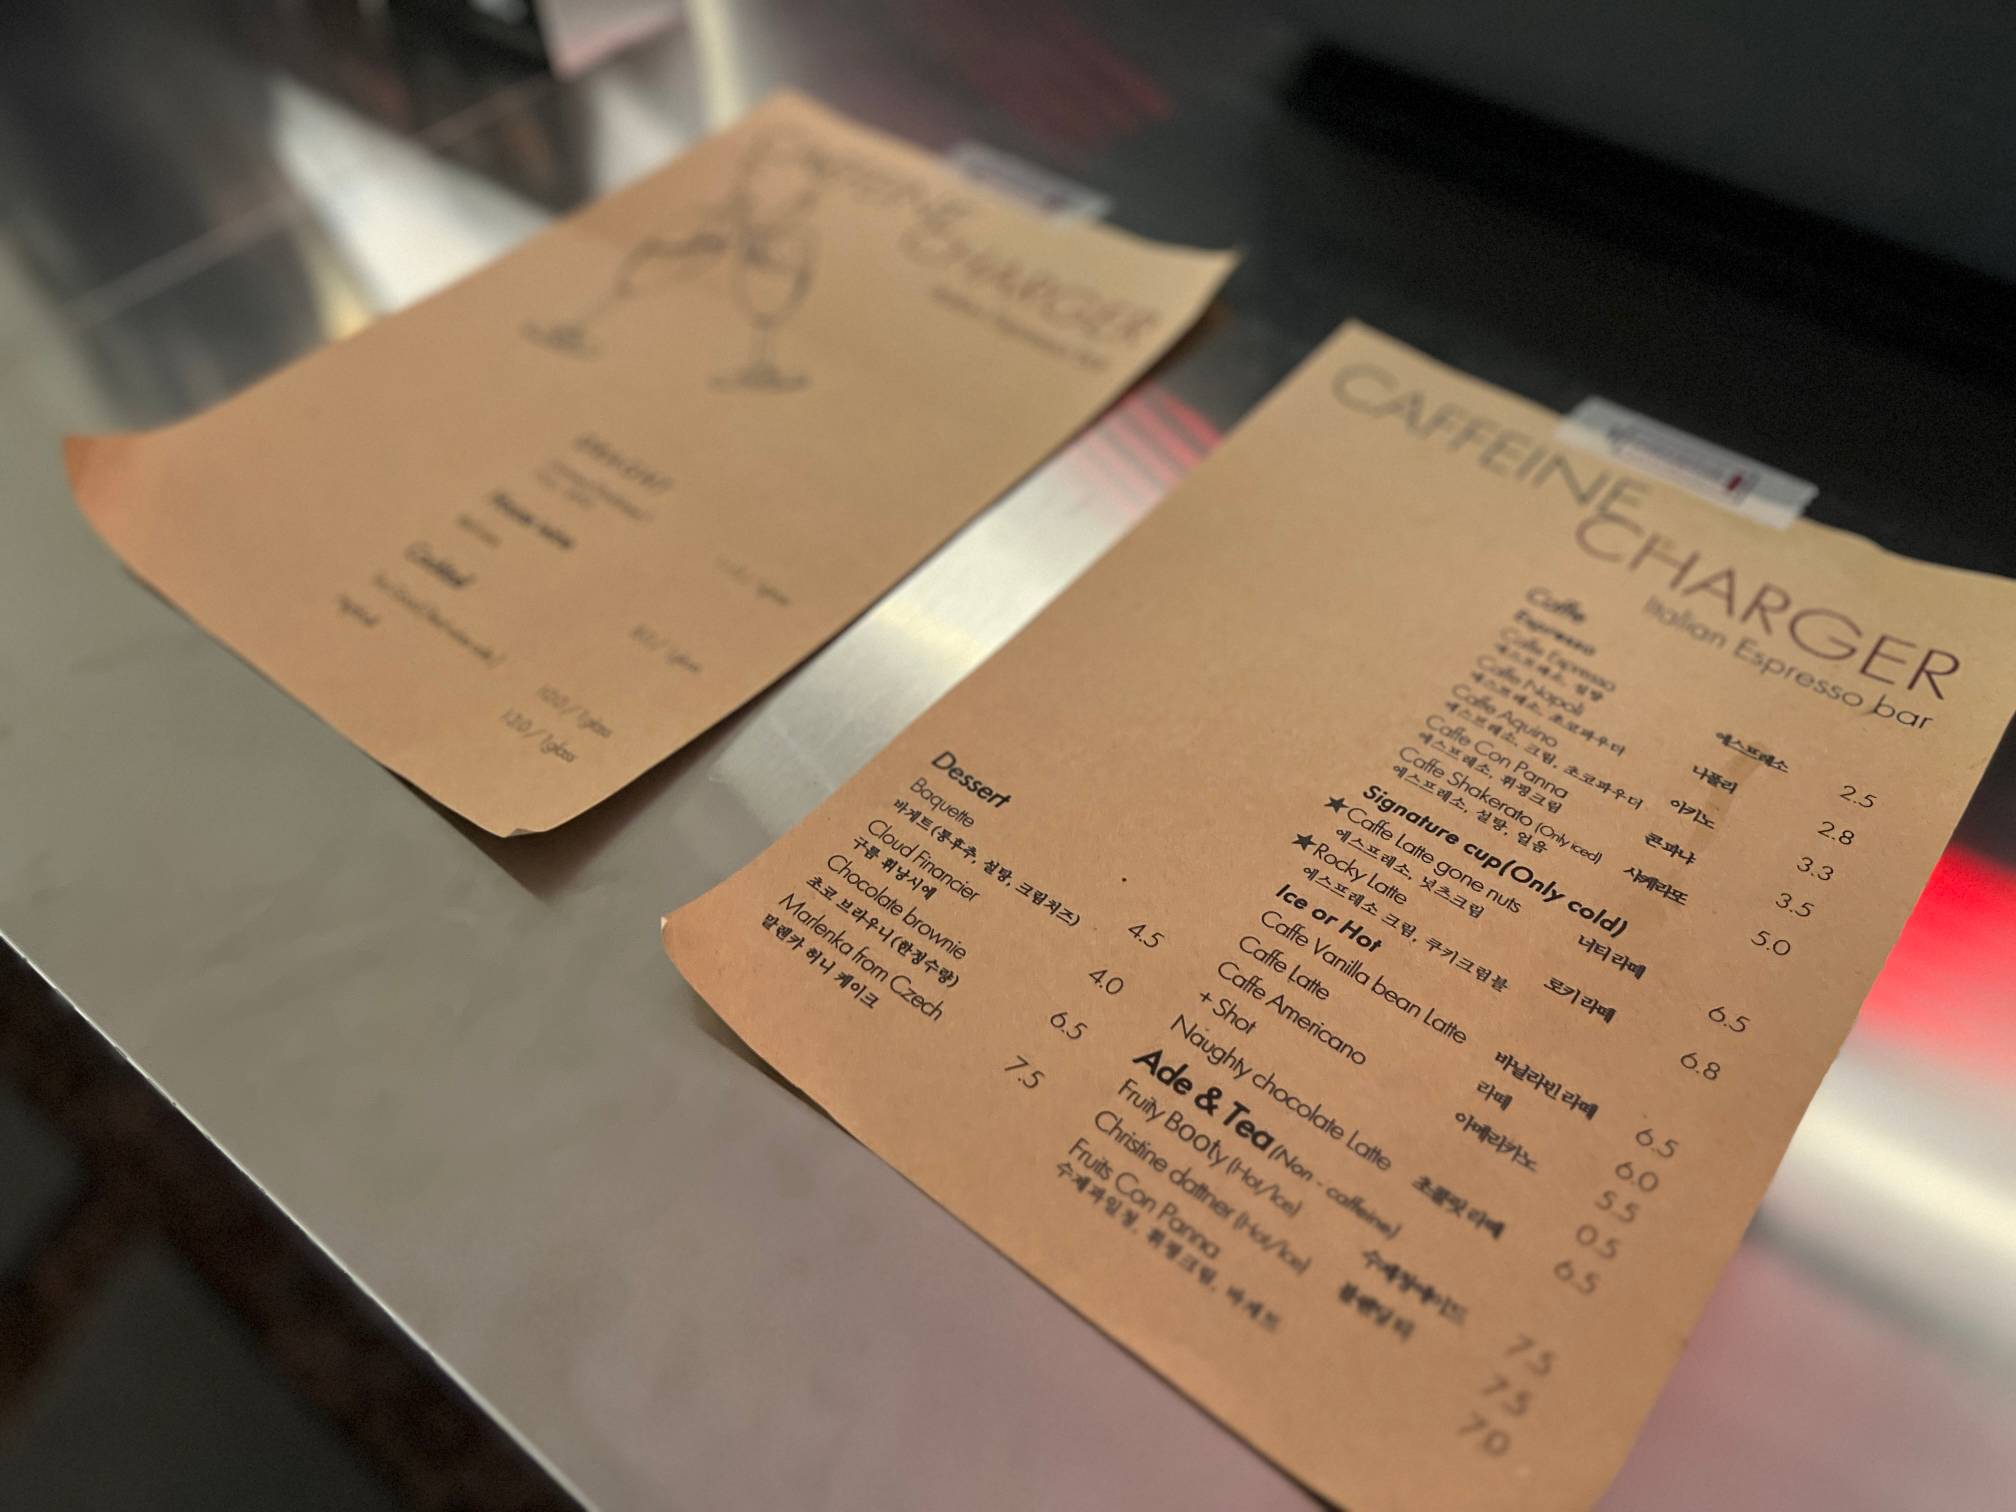 CAFFEINE
CHARGER
CAFFEINE
CHARGER
Italian Espresso bar
Caffe
Espresso
Caffe Espresso 에스프레소 2.5
에스프레소, 설탕
Caffe Napoli 나폴리 2.8
에스프레소, 초코파우더
Caffe Aquino 아키노 3.3
에스프레소, 크림, 초코파우더
Caffe Con Panna 콘파냐 3.5
에스프레소, 휘핑크림
Caffe Shakerato (Only iced) 샤케라또 5.0
에스프레소, 설탕, 얼음
Signature cup(Only cold)
★Caffe Latte gone nuts 너티라떼 6.5
에스프레소, 넛츠크림
★Rocky Latte 로키라떼 6.8
에스프레소 크림, 쿠키크럼블
Ice or Hot
Caffe Vanilla bean Latte 바닐라빈 라떼 6.5
Caffe Latte 라떼 6.0
Caffe Americano 아메리카노 5.5
+ Shot 0.5
Naughty chocolate Latte 초콜릿 라떼 6.5
Ade & Tea (Non - caffeine)
Fruity Booty (Hot/Ice) 수제청에이드 7.5
Christine dattner (Hot/Ice) 블렌딩 티 7.5
Fruits Con Panna 7.0
수제과일청, 휘핑크림, 바게트
Dessert
Baquette 4.5
바게트(통후추, 설탕, 크림치즈)
Cloud Financier 4.0
구름 휘낭시에
Chocolate brownie 6.5
초코 브라우니(한정수량)
Marlenka from Czech 7.5
말렌카 허니 케이크
Cocktail
12.0 / 1glass